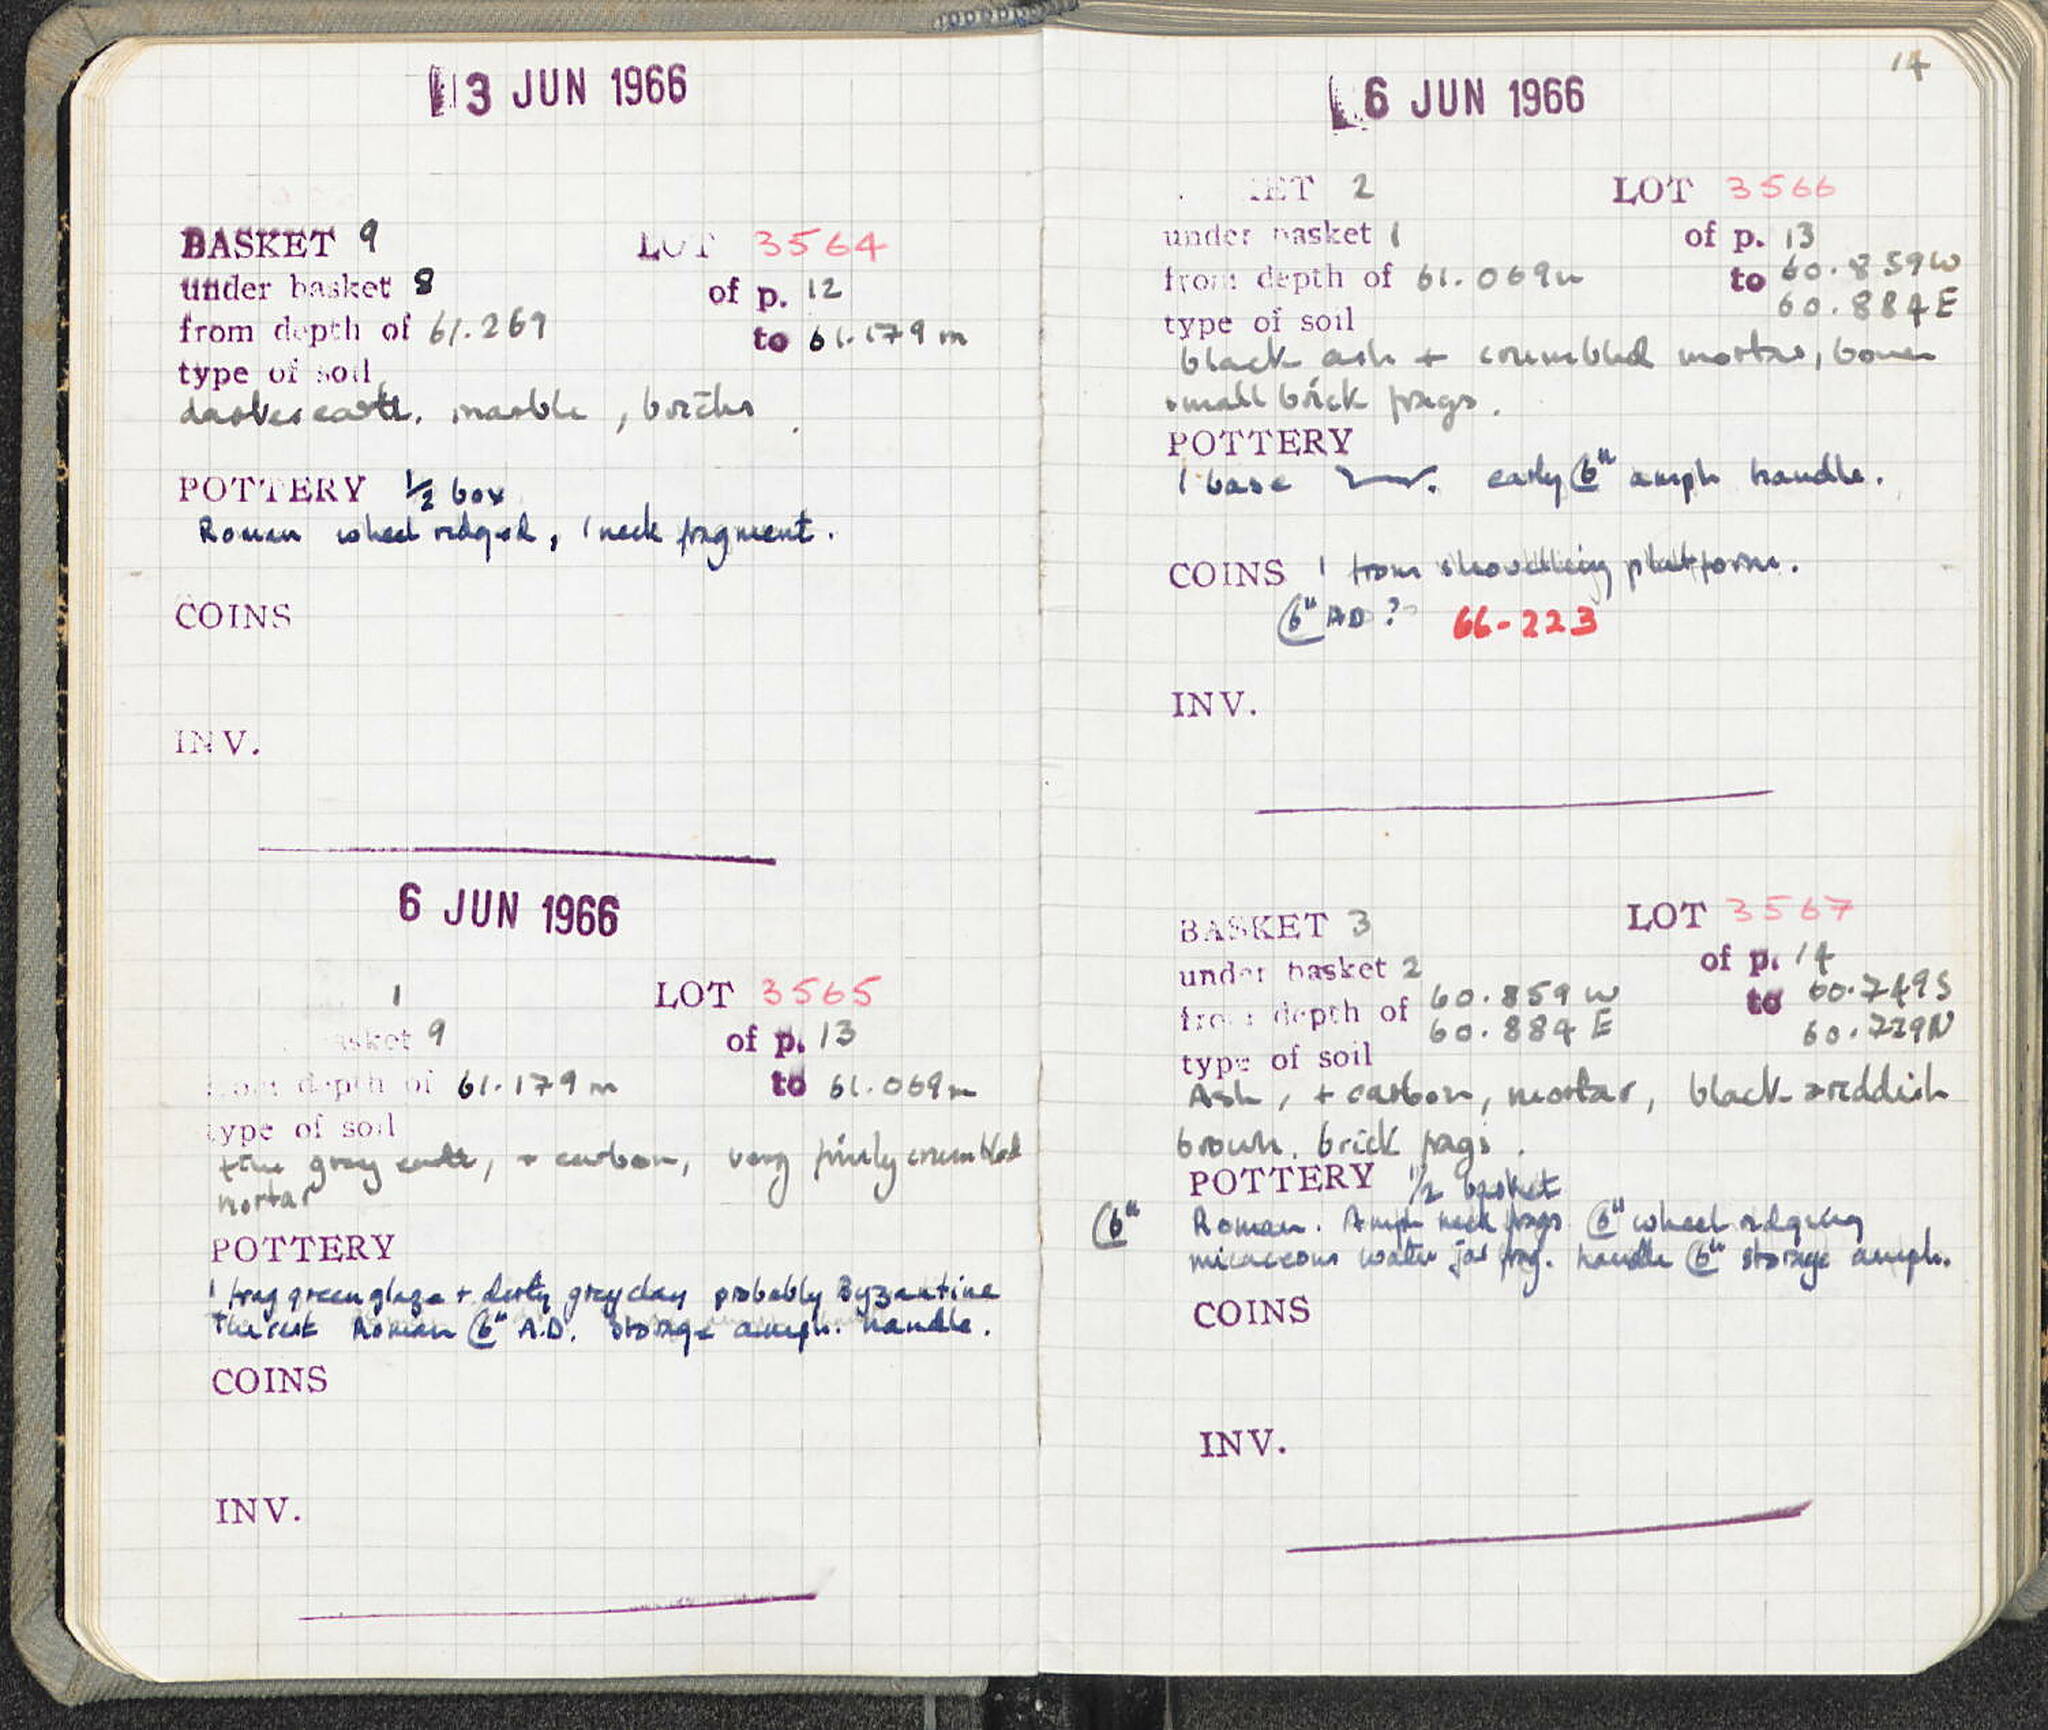 3 JUN 1966
BASKET 9 LOT 3564
under basket 8 of p. 12
from depth of 61.269 to 61.179 m
type of soil
darker earth, marble, bricks
POTTERY 1/2 box
Roman wheel ridged, 1 neck fragment.
COINS
INV.
6 JUN 1966
1 LOT 3565
basket 9 of p. 13
from depth of 61.179 m to 61.069 m
type of soil
fine gray earth, + carbon, very finely crumbled
mortar
POTTERY
1 frag green glaze + dirty grey clay probably Byzantine
The rest Roman C6th A.D. storage amph. handle.
COINS
INV.
14
6 JUN 1966
KET 2 LOT 3566
under basket 1 of p. 13
from depth of 61.069 m to 60.859 W
60.884 E
type of soil
black ash + crumbled mortar, bones
small brick frags.
POTTERY
1 base early C6th amph handle.
COINS 1 from shovelling platform.
C6th AD? 66-223
INV.
BASKET 3 LOT 3567
under basket 2 of p. 14
from depth of 60.859 W to 60.749 S
60.884 E 60.729 N
type of soil
Ash, + carbon, mortar, black + reddish
brown. brick frags.
POTTERY 1/2 basket
C6th Roman. Amph neck frags C6th wheel ridging
micaceous water jar frag. handle C6th storage amph.
COINS
INV.